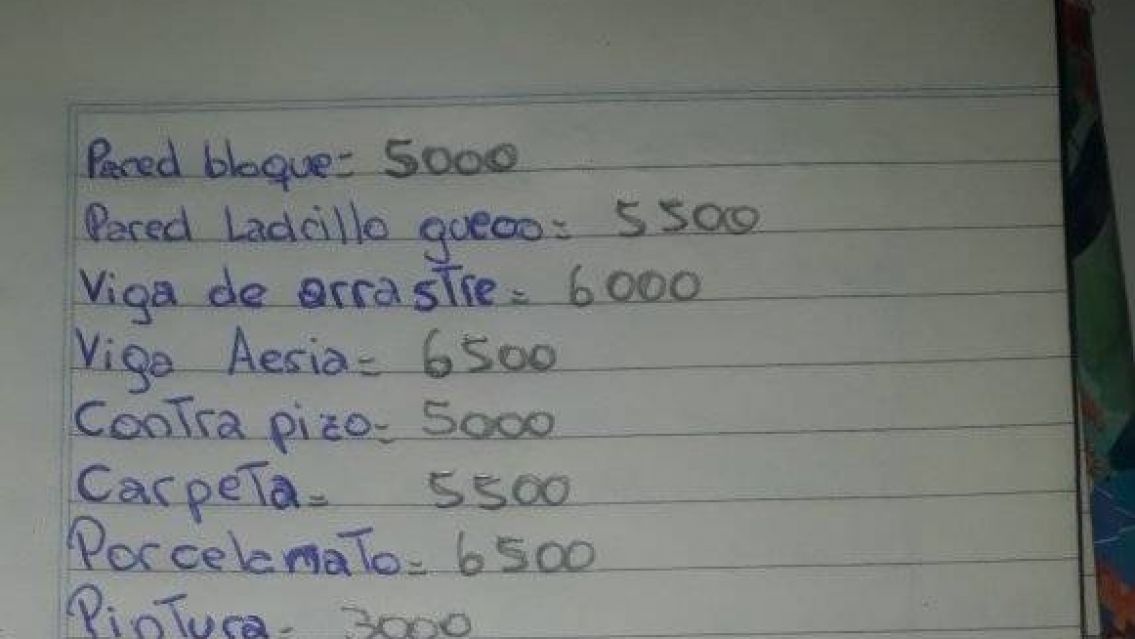 Pared bloque= 5000
Pared Ladcillo gueco= 5500
Viga de arrastre= 6000
Viga Aeria= 6500
Contra pizo= 5000
Carpeta= 5500
Porcelamato= 6500
Pintura= 3000